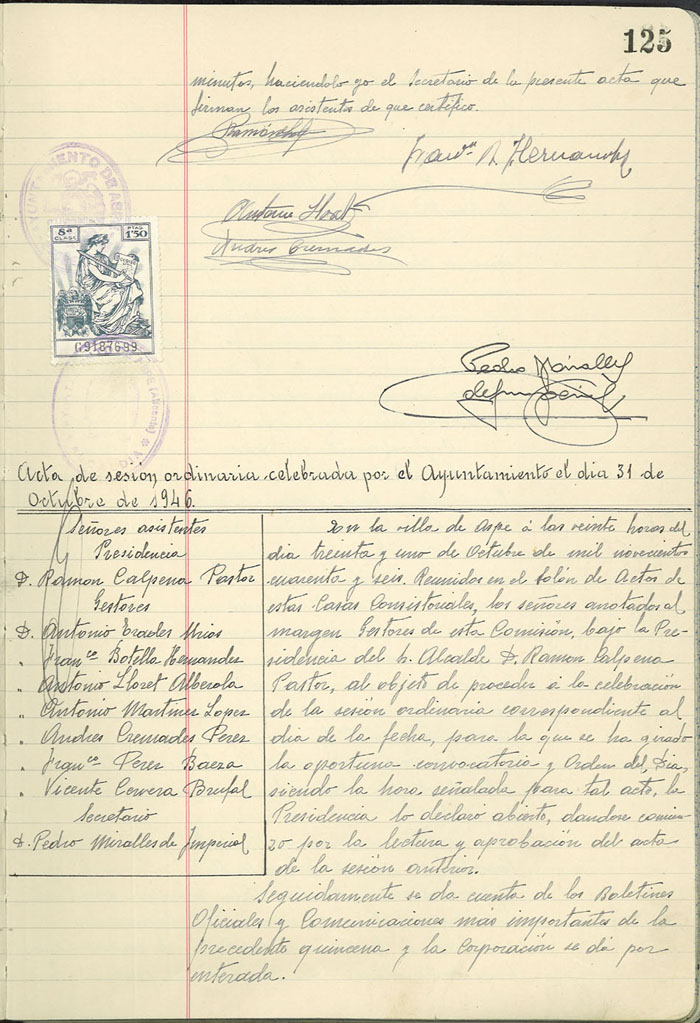 125
minutos, haciendolo yo el Secretario de la presente acta que
firman, los asistentes de que certifico.
AYUNTAMIENTO DE
Antonio Lloret
Andres Cremades
5ª CLASE PTAS 1'50
G9187699
(Alicante)
Pedro Miralles
Acta de sesion ordinaria celebrada por el Ayuntamiento el dia 31 de
Octubre de 1946.
Señores asistentes
Presidencia
D. Ramon Calpena Pastor
Gestores
D. Antonio Erades Mira
" Franco Botella Hernandez
" Antonio Lloret Alberola
" Antonio Martinez Lopez
" Andres Cremades Perez
" Franco Perez Baeza
" Vicente Cervera Brufal
Secretario
D. Pedro Miralles de Imperial
En la villa de Aspe á las veinte horas del
dia treinta y uno de Octubre de mil novecientos
cuarenta y seis. Reunidos en el Salón de Actos de
estas Casas Consistoriales, los señores anotados al
margen Gestores de esta Comisión, bajo la Pre-
sidencia del Sr. Alcalde D. Ramon Calpena
Pastor, al objeto de proceder á la celebración
de la sesión ordinaria correspondiente al
dia de la fecha, para la que se ha girado
la oportuna convocatoria y Orden del Dia,
siendo la hora señalada para tal acto, la
Presidencia lo declaro abierto, dandose comien-
zo por la lectura y aprobación del acta
de la sesión anterior.
Seguidamente se da cuenta de los Boletines
Oficiales y Comunicaciones más importantes de la
precedente quincena y la Corporación se dá por
enterada.